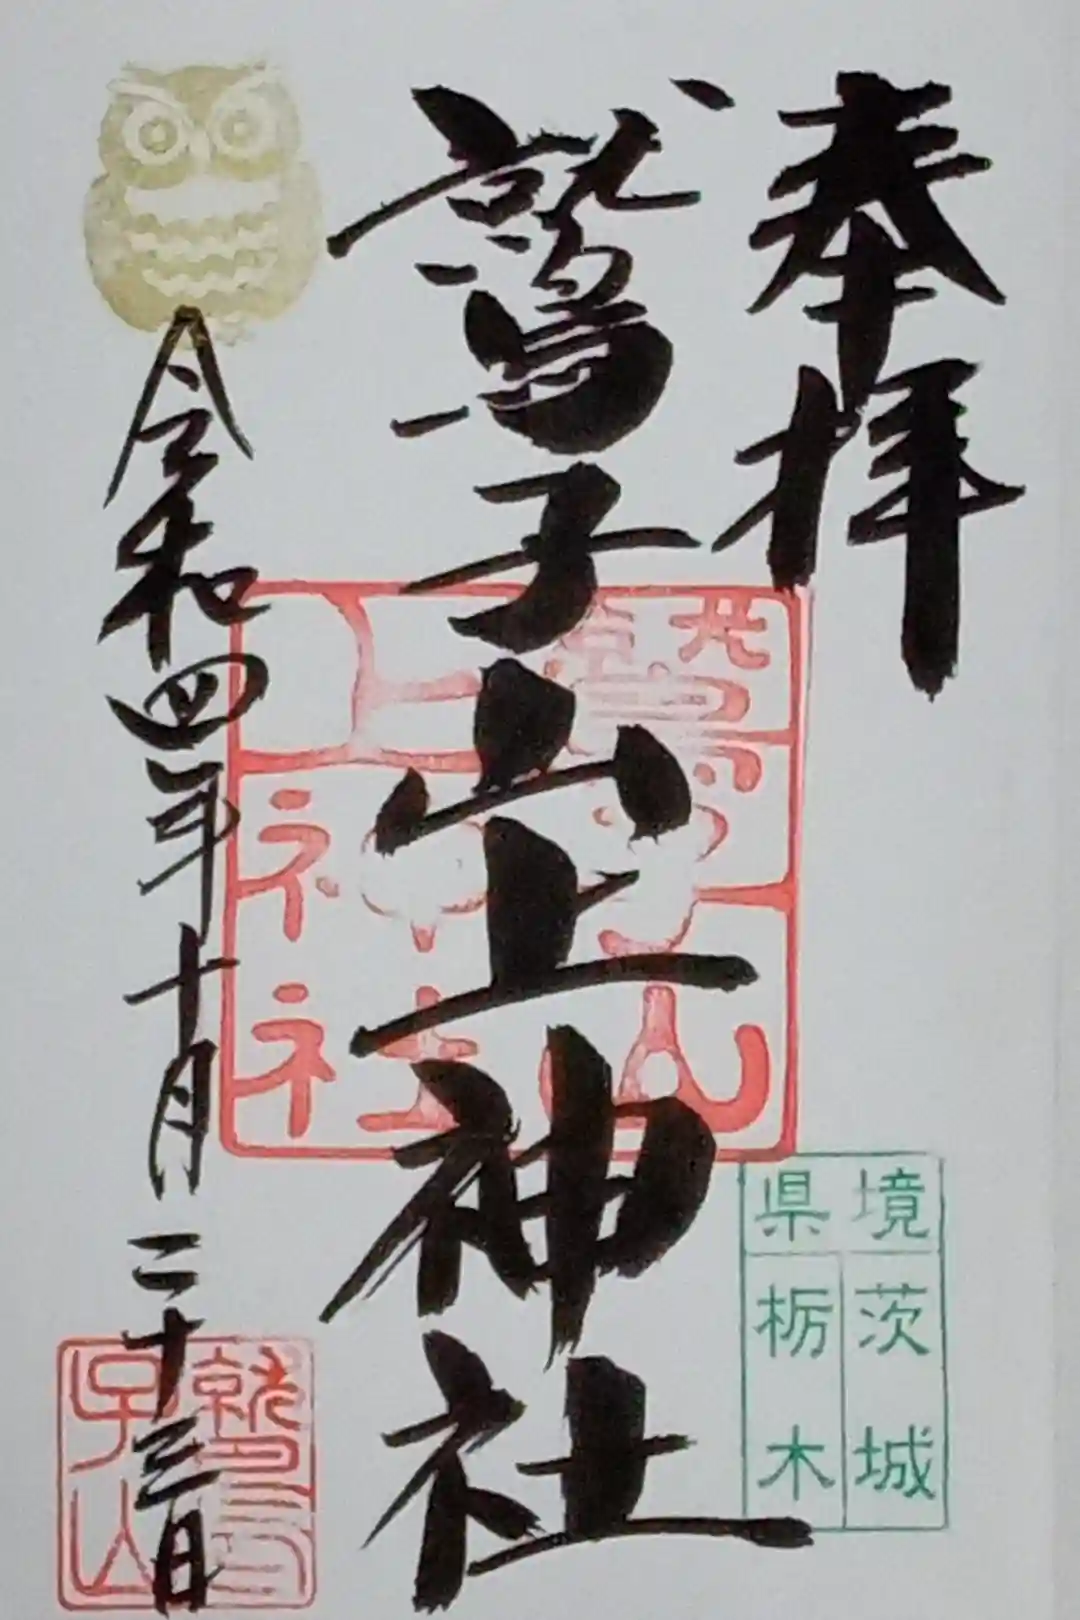 奉拝
鷲子山上神社
令和四年十月二十三日
鷲子山
上神社
境
県
茨城
栃木
鷲子山